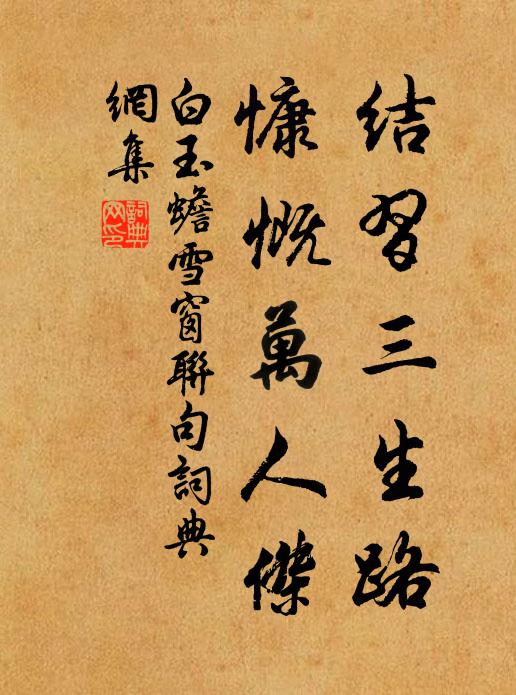 結習三生路
慷慨萬人傑
白玉蟾雪窗聯句詞典
網集
詞典
网印